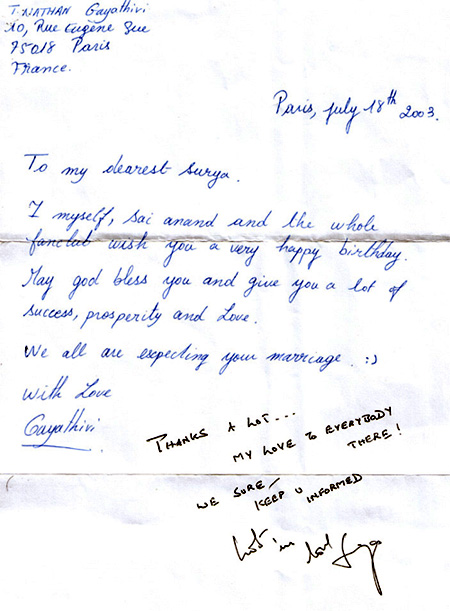 T.NATHAN Gayathivi
10, Rue Eugène Sue
75018 Paris
France.
Paris, july 18th 2003.
To my dearest Surya.
I myself, Sai anand and the whole
fanclub wish you a very happy birthday.
May god bless you and give you a lot of
success, prosperity and Love.
We all are expecting your marriage. :)
With Love
Gayathivi
THANKS A LOT...
MY LOVE TO EVERYBODY
THERE!
WE SURE
KEEP U INFORMED